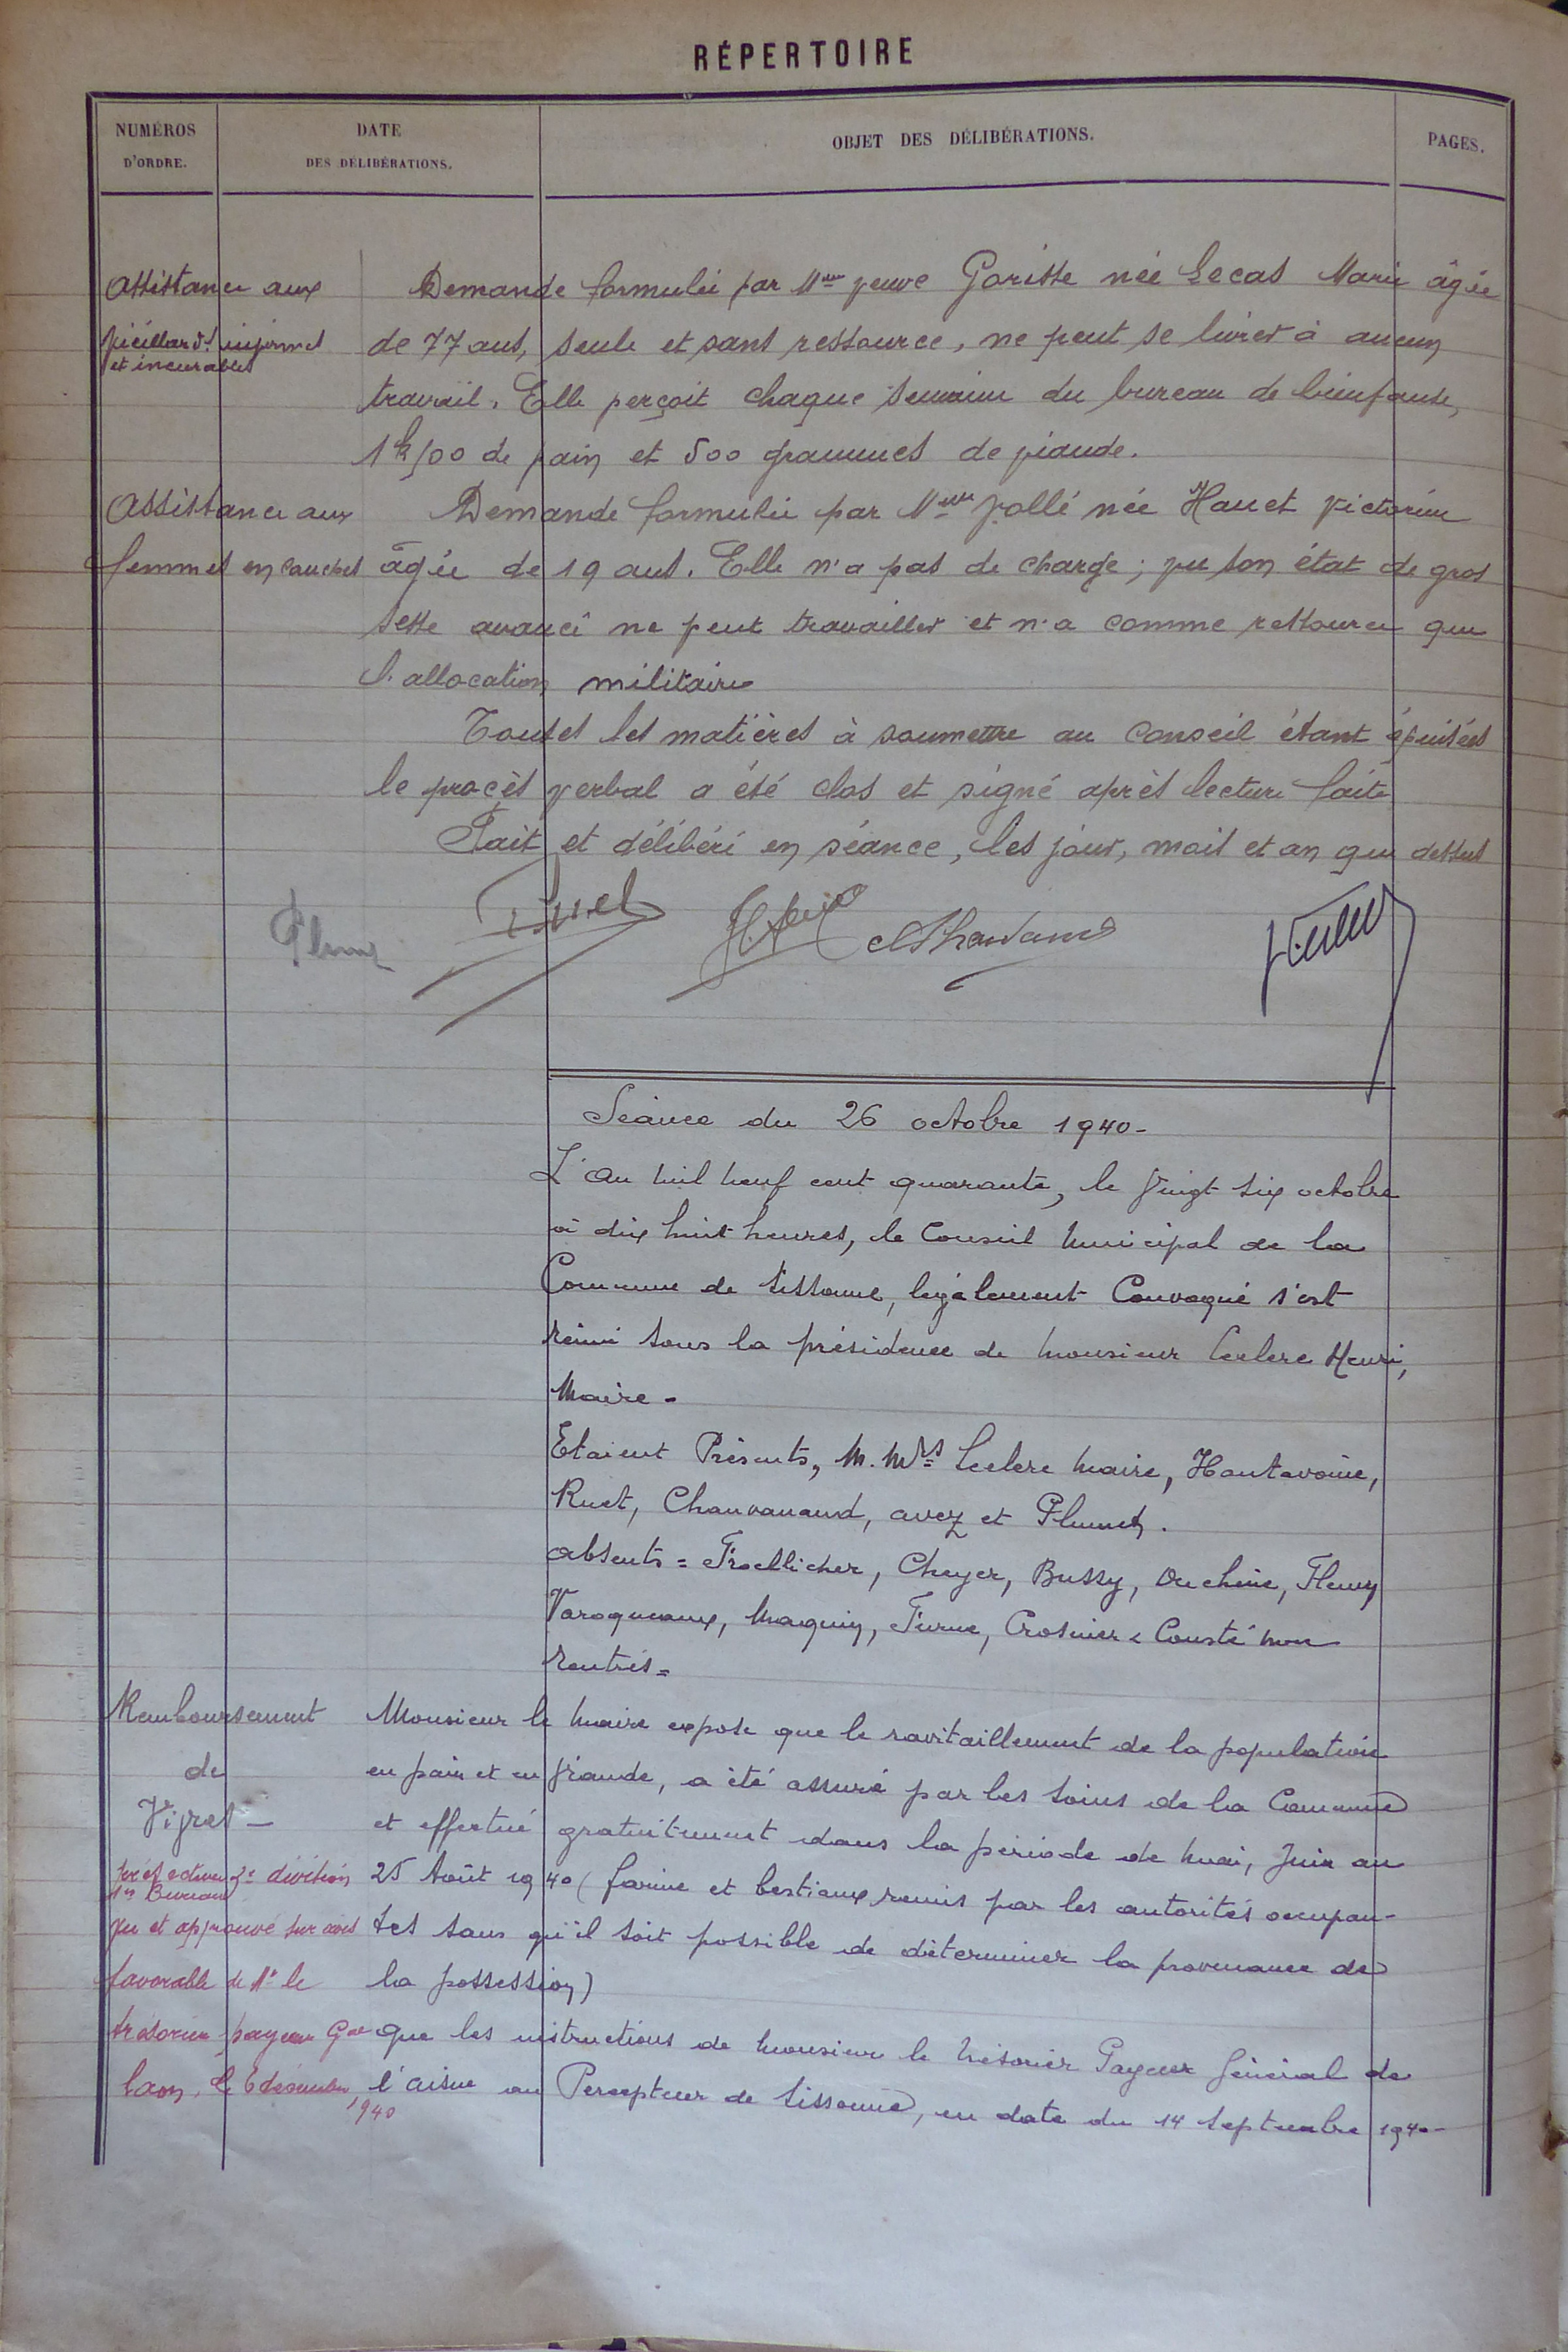 RÉPERTOIRE
NUMÉROS D'ORDRE.
DATE DES DÉLIBÉRATIONS.
OBJET DES DÉLIBÉRATIONS.
PAGES.
Assistance aux
vieillards infirmes
et incurables
Demande formulée par Mme veuve Gorisse née Lecas Marie âgée
de 77 ans, seule et sans ressource, ne peut se livrer à aucun
travail. Elle perçoit chaque semaine du bureau de bienfaisance,
de pain et 500 grammes de viande.
Assistance aux
femmes en couches
Demande formulée par Mme Vollé née Hauet Victorine
âgée de 19 ans. Elle n'a pas de charge ; vu son état de gros
sesse avancé ne peut travailler et n'a comme ressource que
l'allocation militaire
Toutes les matières à soumettre au Conseil étant épuisées
le procès verbal a été clos et signé après lecture faite
Fait et délibéré en séance, les jour, mois et an que dessus
Séance du 26 octobre 1940-
L'an mil neuf cent quarante, le vingt six octobre
à dix huit heures, le Conseil Municipal de la
Commune de Sissonne, légalement Convoqué s'est
réuni sous la présidence de Monsieur Leclere Henri,
Maire -
Etaient Présents, M. Mrs Leclere Maire, Hautavoine,
Ruet, Chauvanaud, avez et Plumet.
absents = Froellicher, Cheyer, Bussy, Duchêne, Fleury
Varoqueaux, Maquin, Turne, Crosnier & Cousté non
rentrés =
Remboursement
de
Vivres -
Monsieur le Maire expose que le ravitaillement de la population
en pain et en viande, a été assuré par les soins de la Commune
et effectué gratuitement dans la période de Mai, Juin au
25 Août 1940 (farine et bestiaux remis par les autorités occupan-
tes sans qu'il soit possible de déterminer la provenance de
la possession)
que les instructions de Monsieur le Trésorier Payeur Général de
l'aisne au Percepteur de Sissonne, en date du 14 septembre 1940-
préfecture 2e division
1er Bureau
vu et approuvé sur avis
favorable de Mr le
trésorier payeur Gal
Laon, le 6 décembre
1940